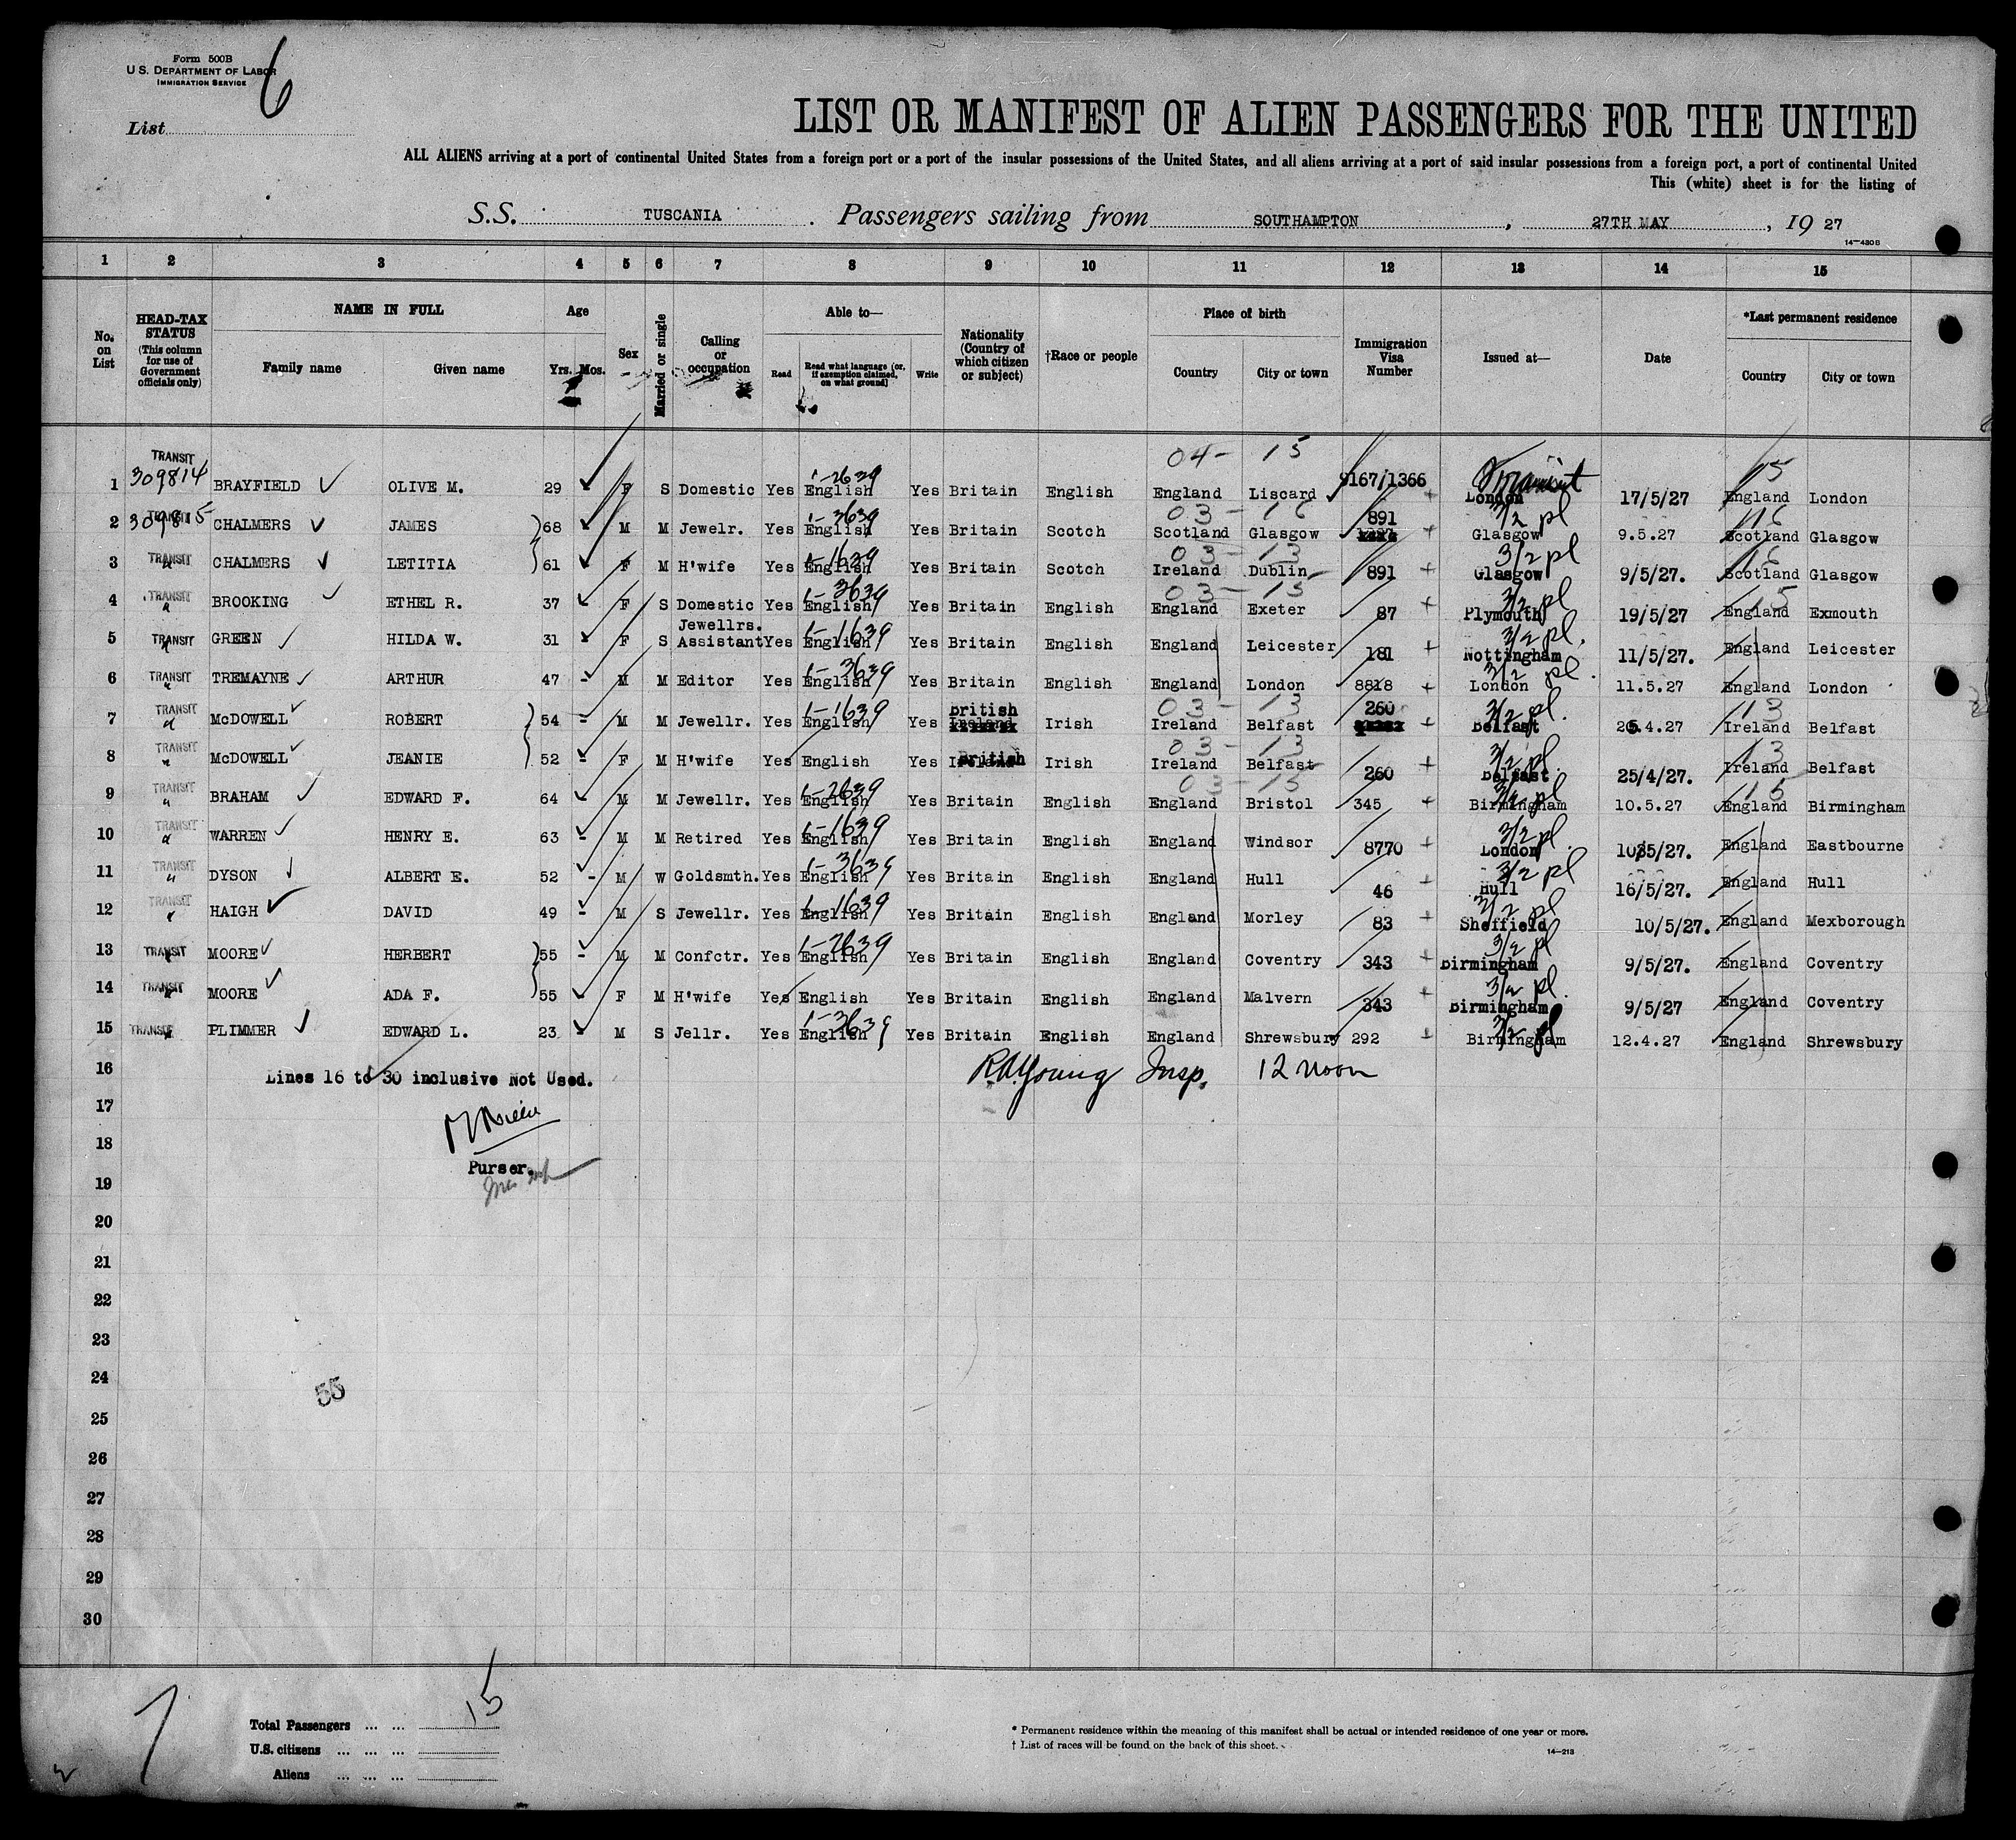 Form 500B
U. S. DEPARTMENT OF LABOR
IMMIGRATION SERVICE
6
List
LIST OR MANIFEST OF ALIEN PASSENGERS FOR THE UNITED
ALL ALIENS arriving at a port of continental United States from a foreign port or a port of the insular possessions of the United States, and all aliens arriving at a port of said insular possessions from a foreign port, a port of continental United
This (white) sheet is for the listing of
S.S. TUSCANIA . Passengers sailing from SOUTHAMPTON , 27TH MAY , 19 27
14—430B
1 2 3 4 5 6 7 8 9 10 11 12 13 14 15
No. on List
HEAD-TAX STATUS (This column for use of Government officials only)
NAME IN FULL
Family name Given name
Age
Yrs. Mos.
Sex
Married or single
Calling or occupation
Able to—
Read
Read what language (or, if exemption claimed, on what ground)
Write
Nationality (Country of which citizen or subject)
†Race or people
Place of birth
Country City or town
Immigration Visa Number
Issued at—
Date
*Last permanent residence
Country City or town
04- 15 15
1 TRANSIT 309814 BRAYFIELD OLIVE M. 29 F S Domestic Yes English 1-2639 Yes Britain English England Liscard 9167/1366 Transit London 17/5/27 England London
03-16 3/2 pl 16
2 309815 CHALMERS JAMES 68 M M Jewelr. Yes English 1-3639 Yes Britain Scotch Scotland Glasgow 891 Glasgow 9.5.27 Scotland Glasgow
03-13 3/2 pl 16
3 TRANSIT CHALMERS LETITIA 61 F M H'wife Yes English 1-1639 Yes Britain Scotch Ireland Dublin 891 Glasgow 9/5/27. Scotland Glasgow
03-15 3/2 pl 15
4 TRANSIT BROOKING ETHEL R. 37 F S Domestic Yes English 1-3639 Yes Britain English England Exeter 87 Plymouth 19/5/27 England Exmouth
5 TRANSIT GREEN HILDA W. 31 F S Jewellrs. Assistant Yes English 1-1639 Yes Britain English England Leicester 181 3/2 pl. Nottingham 11/5/27. England Leicester
6 TRANSIT TREMAYNE ARTHUR 47 - M M Editor Yes English 1-3639 Yes Britain English England London 8818 3/2 pl. London 11.5.27 England London
03-13 3/2 pl. 13
7 TRANSIT McDOWELL ROBERT 54 - M M Jewellr. Yes English 1-1639 Yes British Irish Ireland Belfast 260 Belfast 4.27 Ireland Belfast
03-13 3/2 pl. 13
8 TRANSIT McDOWELL JEANIE 52 - F M H'wife Yes English Yes British Irish Ireland Belfast 260 Belfast 25/4/27. Ireland Belfast
03-15 3/2 pl 15
9 TRANSIT BRAHAM EDWARD F. 64 M M Jewellr. Yes English 1-2639 Yes Britain English England Bristol 345 Birmingham 10.5.27 England Birmingham
10 TRANSIT WARREN HENRY E. 63 - M M Retired Yes English 1-1639 Yes Britain English England Windsor 8770 3/2 pl. London 10/5/27. England Eastbourne
11 TRANSIT DYSON ALBERT E. 52 - M W Goldsmth. Yes English 1-3639 Yes Britain English England Hull 46 3/2 pl Hull 16/5/27. England Hull
12 TRANSIT HAIGH DAVID 49 - M S Jewellr. Yes English 1-1639 Yes Britain English England Morley 83 3/2 pl Sheffield 10/5/27. England Mexborough
13 TRANSIT MOORE HERBERT 55 - M M Confctr. Yes English 1-2639 Yes Britain English England Coventry 343 3/2 pl Birmingham 9/5/27. England Coventry
14 TRANSIT MOORE ADA F. 55 - F M H'wife Yes English Yes Britain English England Malvern 343 3/2 pl. Birmingham 9/5/27 England Coventry
15 TRANSIT PLIMMER EDWARD L. 23 - M S Jellr. Yes English 1-3639 Yes Britain English England Shrewsbury 292 3/2 pl Birmingham 12.4.27 England Shrewsbury
16 Lines 16 to 30 inclusive Not Used. R.A. Young Insp. 12 noon
17
18
Purser.
19
20
21
22
23
24
55
25
26
27
28
29
30
Total Passengers ... ... 15
U.S. citizens ... ... ...
Aliens ... ... ...
* Permanent residence within the meaning of this manifest shall be actual or intended residence of one year or more.
† List of races will be found on the back of this sheet.
14—213